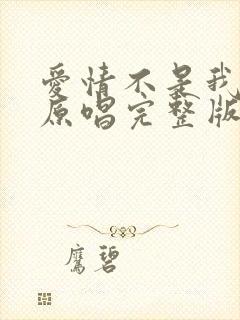 愛情不是我
原唱完整版
鷹碧